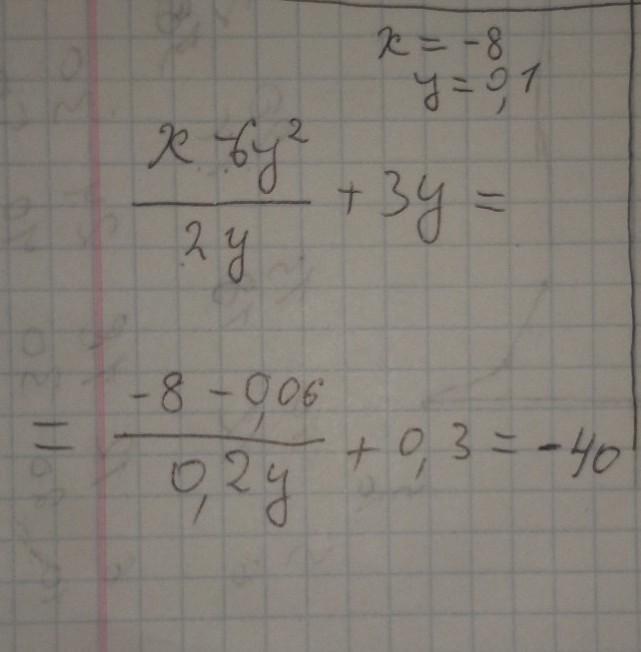 x = -8
y = 0,1
x - 6y²
2y
+ 3y =
= -8 - 0,06
0,2y
+ 0,3 = -40